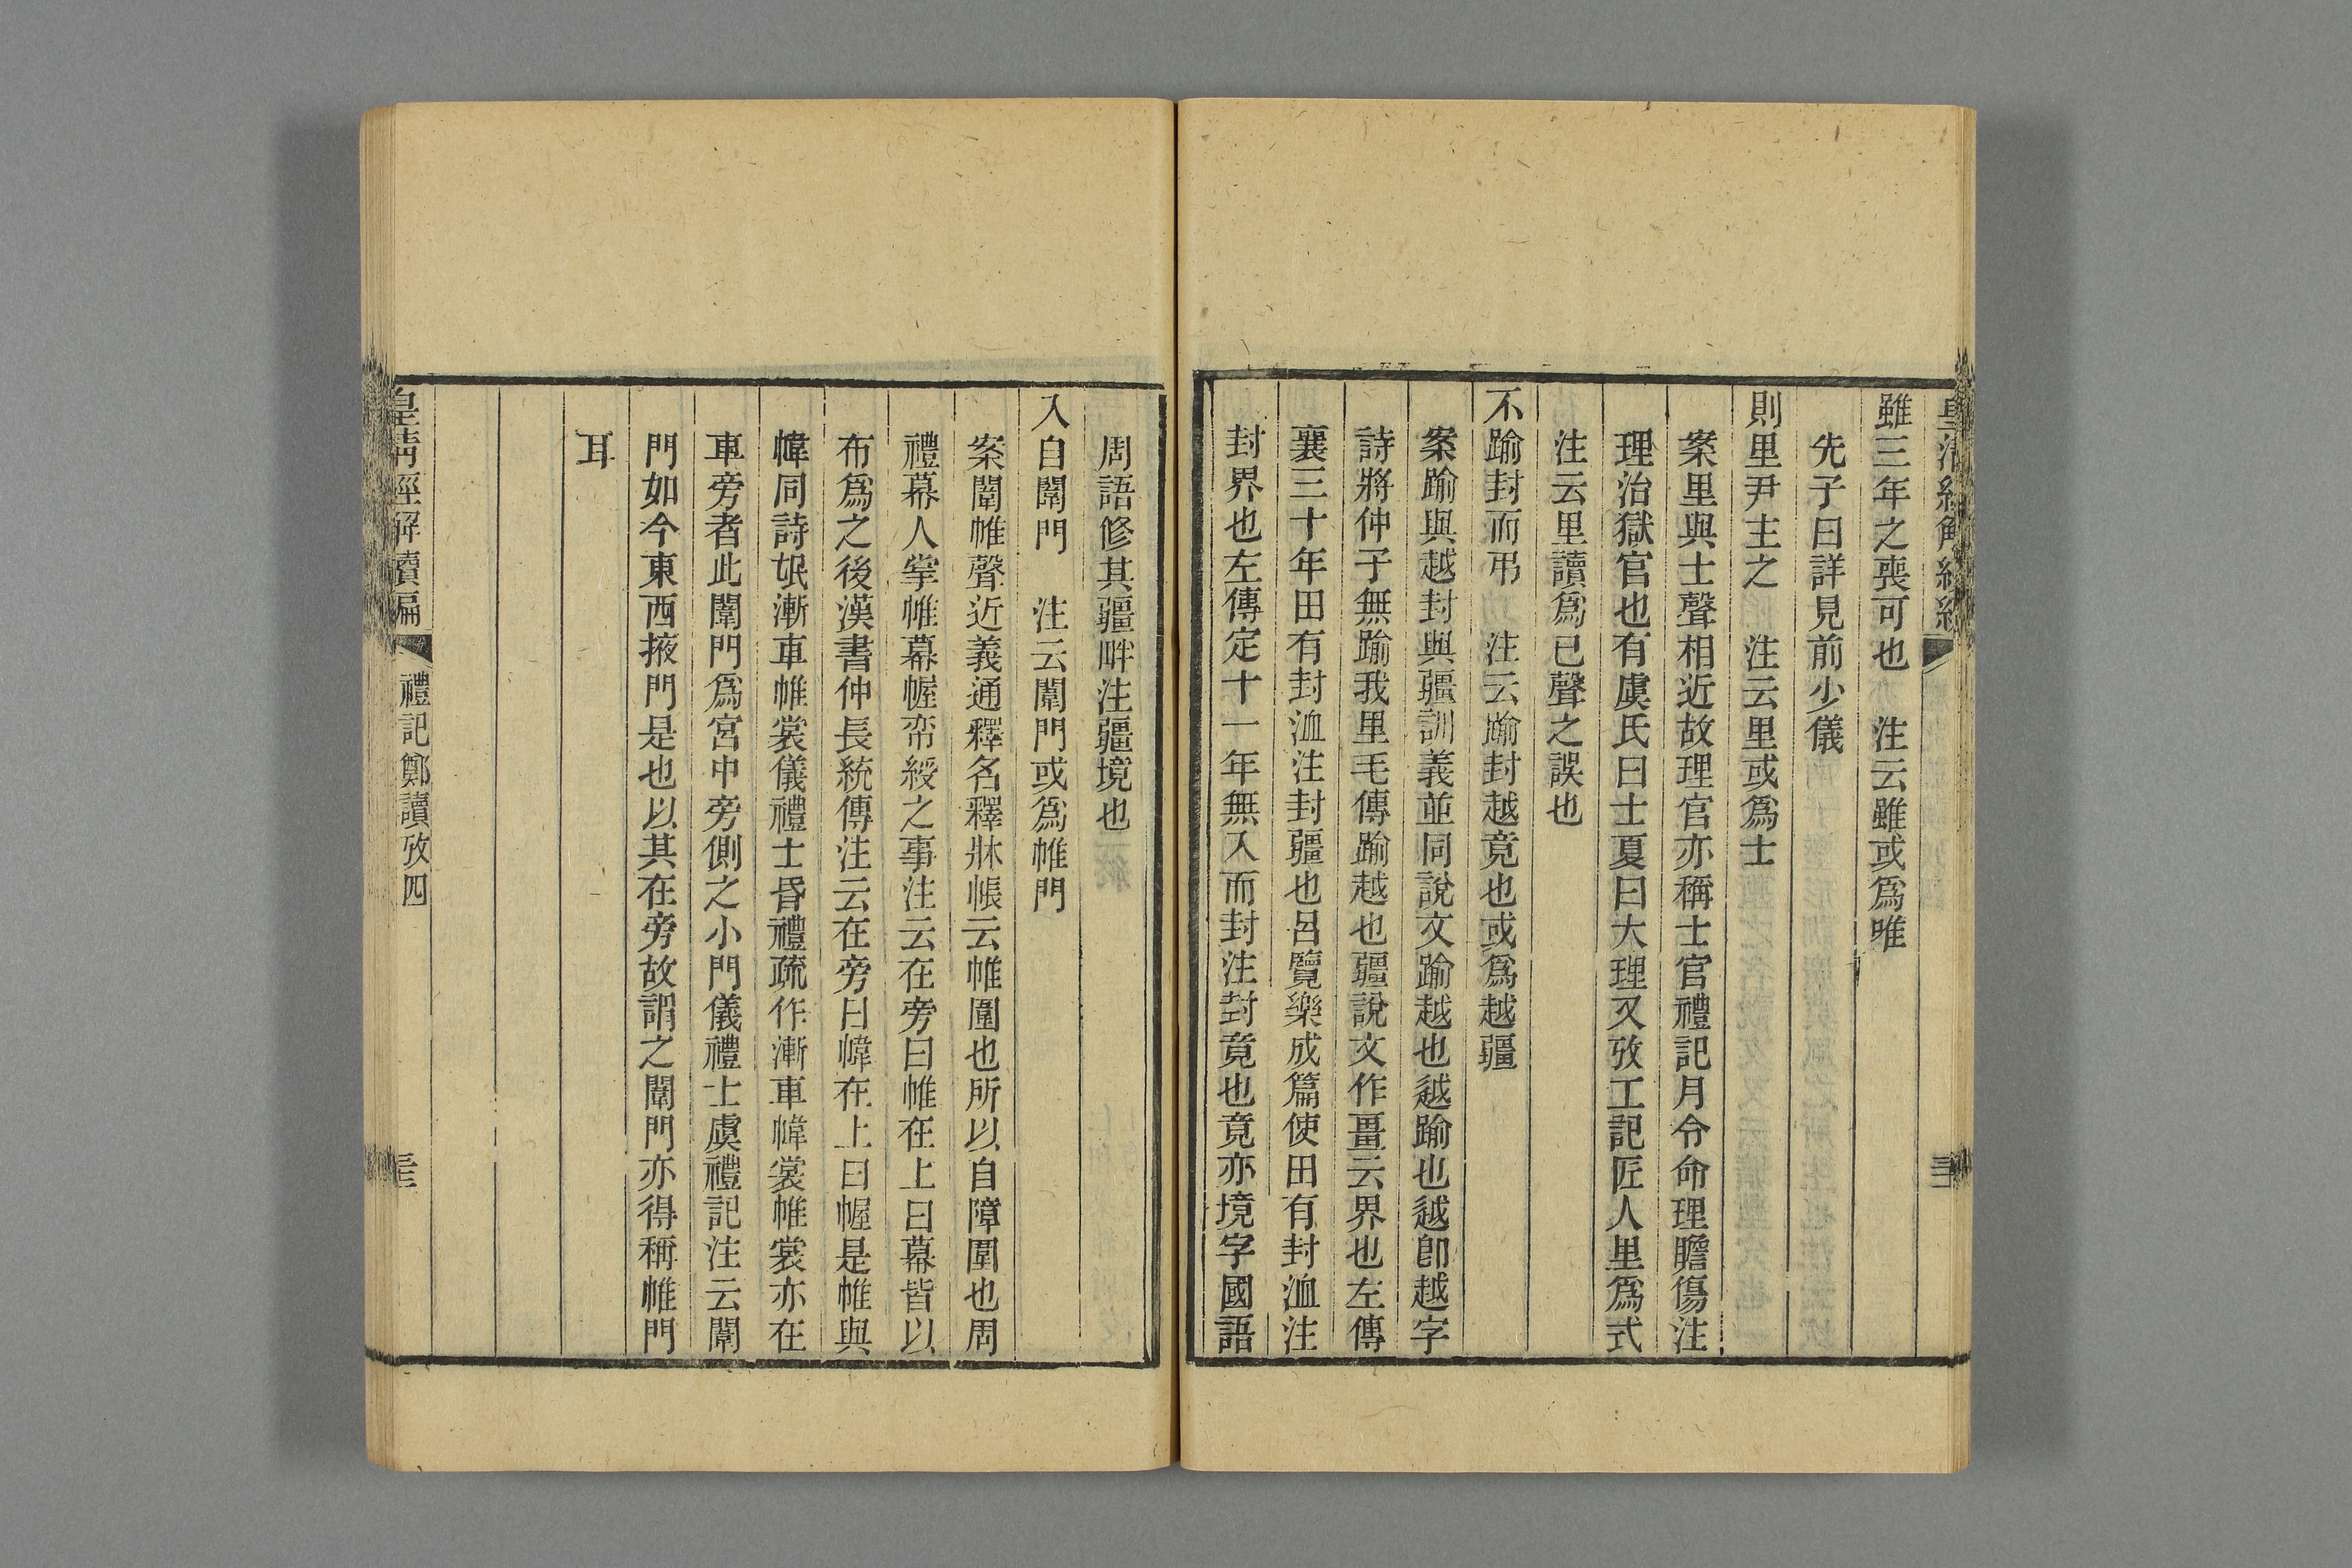 雖三年之喪可也　注云雖或爲唯
先子曰詳見前少儀
則里尹主之　注云里或爲士
案里與士聲相近故理官亦稱士官禮記月令命理瞻傷注
理治獄官也有虞氏曰士夏曰大理又攷工記匠人里爲式
注云里讀爲已聲之誤也
不踰封而弔　注云踰封越竟也或爲越疆
案踰與越封與疆訓義並同說文踰越也越踰也越卽越字
詩將仲子無踰我里毛傳踰越也疆說文作畺云界也左傳
襄三十年田有封洫注封疆也呂覽樂成篇使田有封洫注
封界也左傳定十一年無入而封注封竟也竟亦境字國語
周語修其疆畔注疆境也
入自闈門　注云闈門或爲帷門
案闈帷聲近義通釋名釋牀帳云帷圍也所以自障圍也周
禮幕人掌帷幕幄帟綬之事注云在旁曰帷在上曰幕皆以
布爲之後漢書仲長統傳注云在旁曰幃在上曰幄是帷與
幃同詩氓漸車帷裳儀禮士昏禮疏作漸車幃裳帷裳亦在
車旁者此闈門爲宮中旁側之小門儀禮士虞禮記注云闈
門如今東西掖門是也以其在旁故謂之闈門亦得稱帷門
耳
皇清經解續編　禮記鄭讀攷四